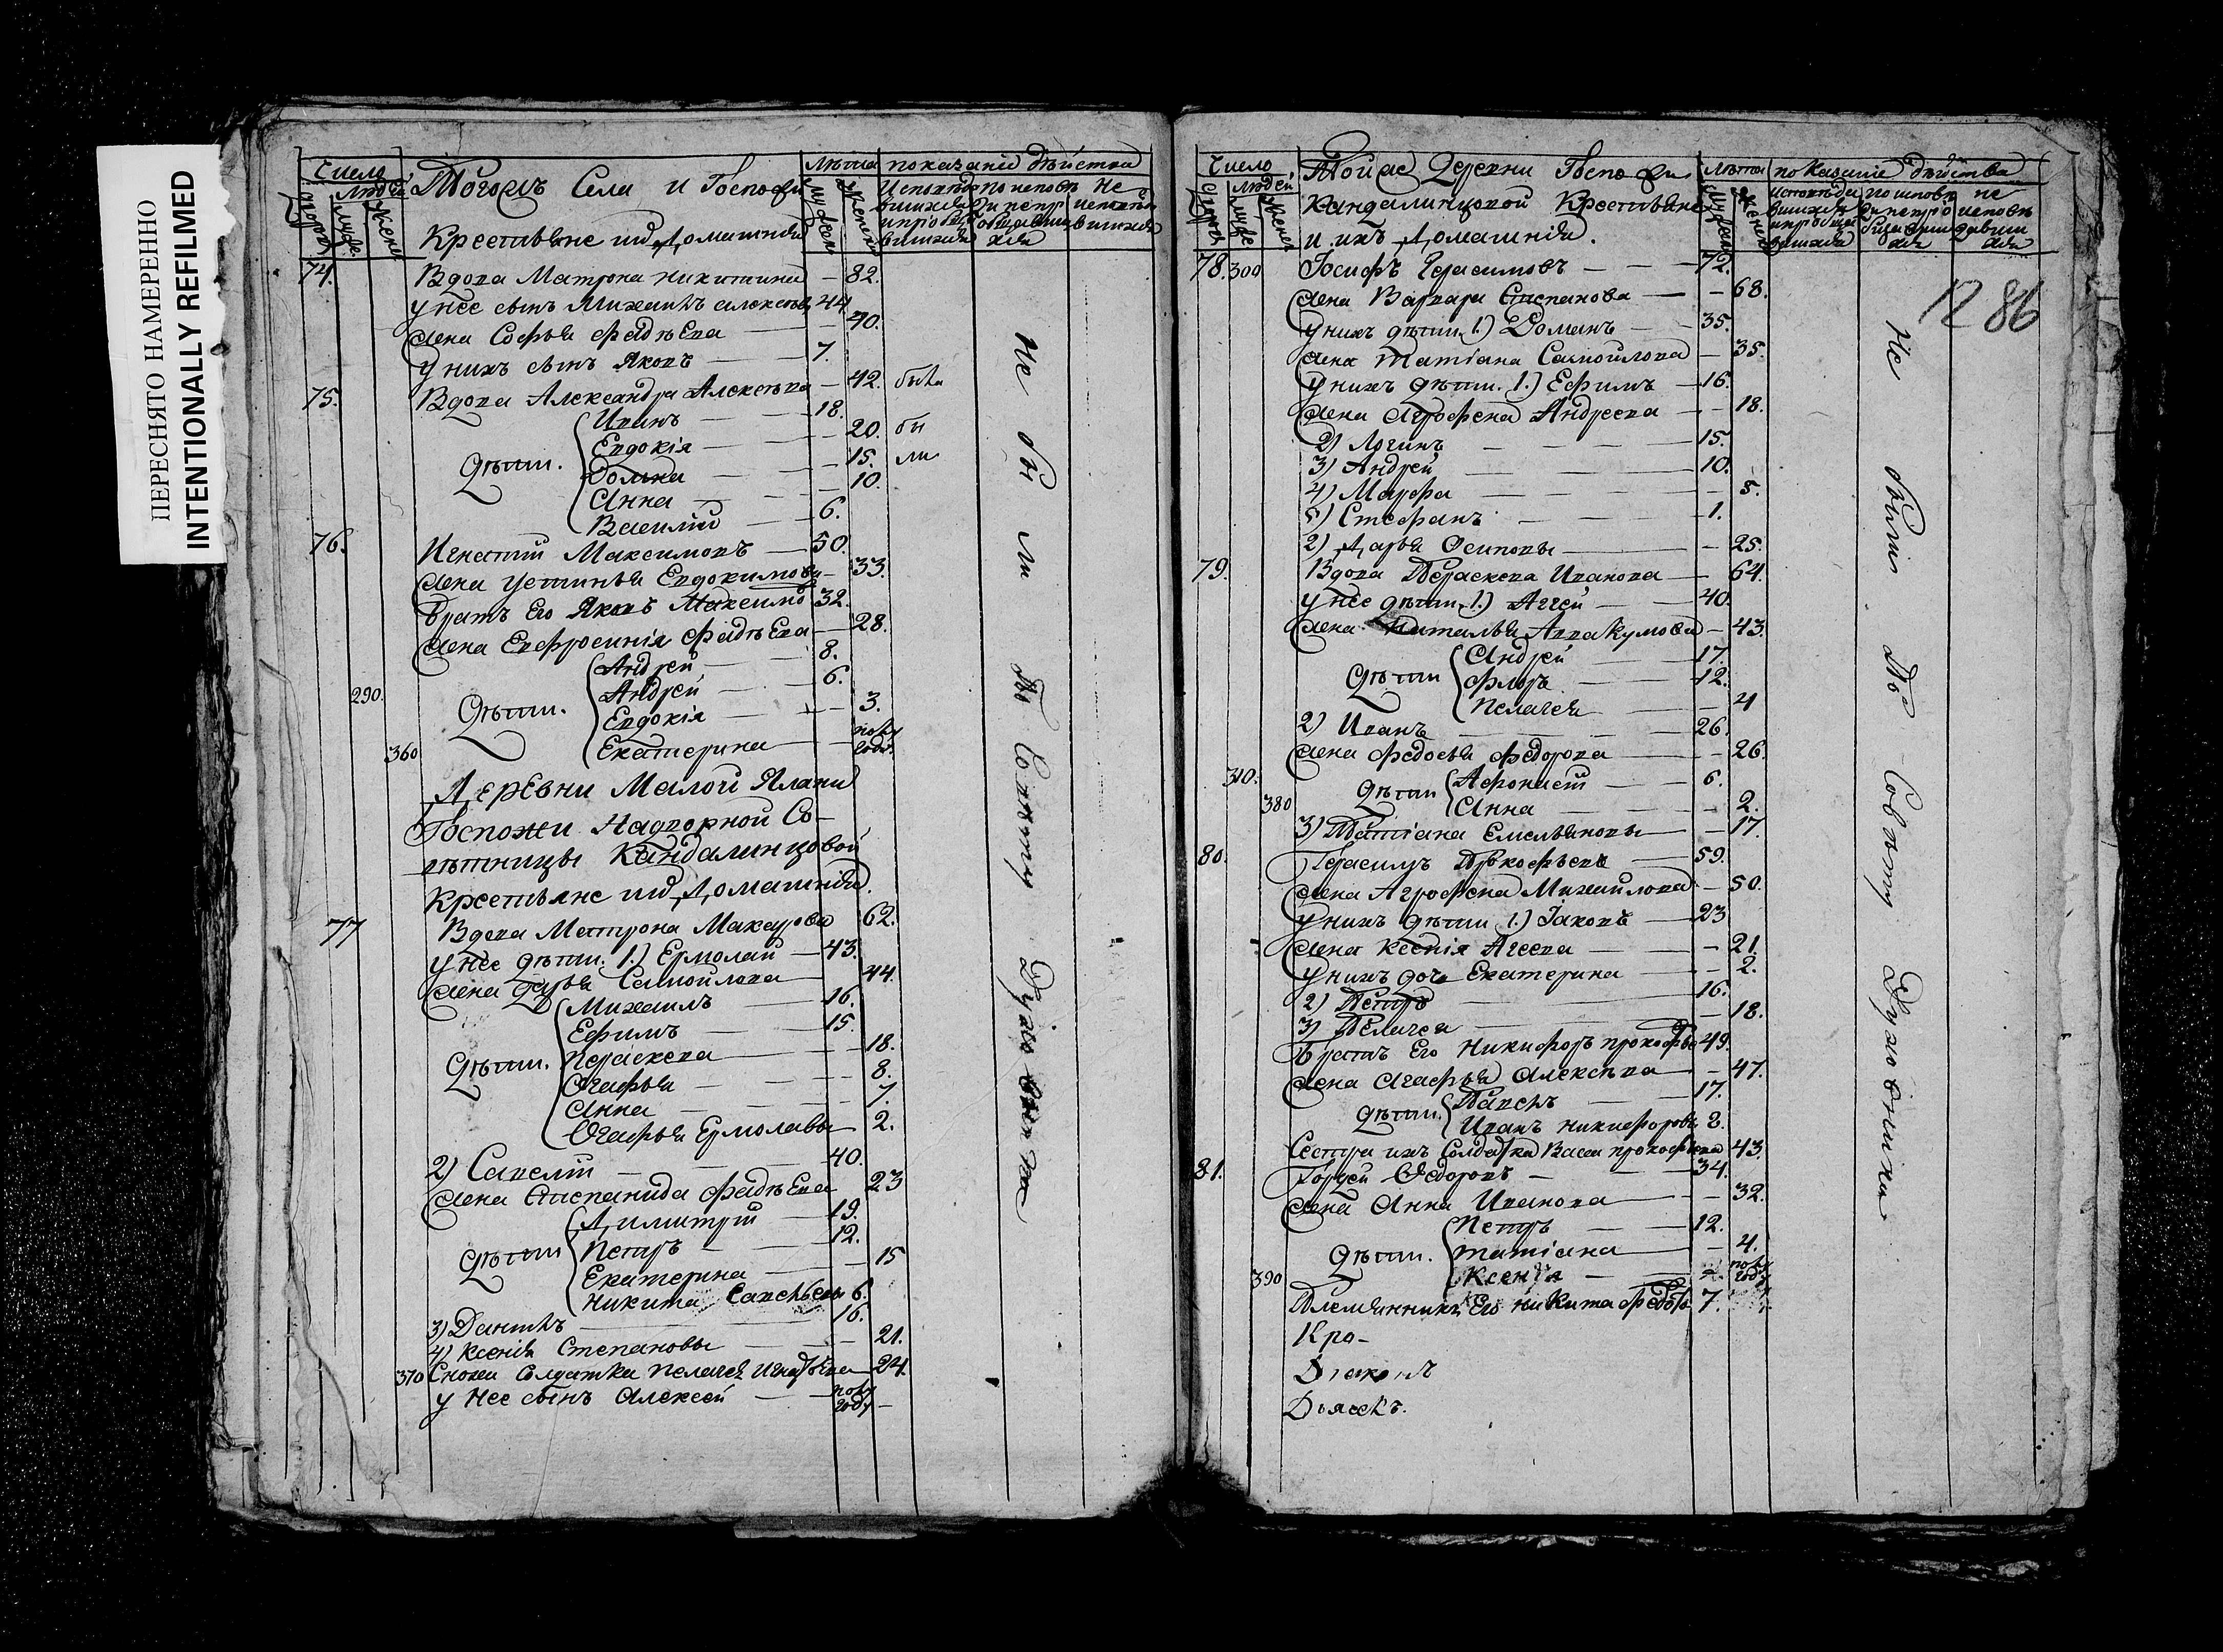 ПЕРЕСНЯТО НАМЕРЕННО
INTENTIONALLY REFILMED
Число
людей
Лѣта
показаніе дѣйства
Тогожъ Села и Господи
Крестьяне ихъ Домашнія
74. Вдова Матрона Никитина — 82.
у нее сынъ Михаилъ Алексѣев 44.
Жена Софья Фадѣева — 40.
у нихъ сынъ Яковъ — 7.
75. Вдова Александра Алексѣева — 42. была
Иванъ — 18.
Евдокія — 20. бы
Дѣти. Домна — 15. ли
Анна — 10.
Василій — 6.
76. Игнатій Максимовъ — 50.
Жена Устинья Евдокимова — 33.
Братъ Его Яковъ Максимо 32.
Жена Евфросинія Фадѣева — 28.
Андрей — 8.
290. Дѣти. Андрей — 6.
Евдокія — 3.
360 Екатерина — полу году.
Деревни Малой Ялани
Госпожи Надворной Со-
вѣтницы Кандалинцовой
Крестьяне ихъ Домашнія.
77 Вдова Матрона Макарова 62.
у нее дѣти. 1.) Ермолай — 43.
Жена Дарья Самойлова — 44.
Михаилъ — 16.
Ефимъ — 15.
Дѣти. Параскева — 18.
Агафья — 8.
Анна — 7.
Агафья Ермолаева — 2.
2) Савелій — 40.
Жена Степанида Фадѣева 23
Димитрій — 19.
Дѣти Петръ — 12.
Екатерина — 15
Никита Савельевъ 6.
3) Данилъ — 16.
4) Ксенія Степановы — 21.
370 Сноха Солдатка Пелагея Игнатьева 24.
у Нее сынъ Алексей — полу году —
Не бы ли По Совѣту Духовника
Число
людей
Лѣта
показаніе дѣйства
Тойже Деревни Госпожи
Кандалинцовой Крестьяне
и ихъ Домашнія.
12 86
78. 300 Іосифъ Герасимовъ — 72.
Жена Варвара Степанова — 68.
у нихъ дѣти 1.) Романъ — 35.
Жена Татіана Самойлова — 35.
у нихъ дѣти. 1.) Ефимъ — 16.
Жена Агрофена Андреева — 18.
2) Логинъ — 15.
3) Андрей — 10.
4) Марфа — 5.
5) Стефанъ — 1.
2) Дарья Осиповы — 25.
79. Вдова Параскева Иванова — 64.
у нее дѣти 1.) Аггей — 40.
Жена Наталья Аввакумова — 43.
Андрей — 17.
Дѣти Флоръ — 12.
Пелагея — 4
2) Иванъ — 26.
Жена Федосья Федорова — 26.
310. Дѣти Афонасій — 6.
380 Анна — 2.
3) Татіана Емельяновы — 17.
80. Герасимъ Прокофьевъ — 59.
Жена Агрофена Михайлова — 50.
у нихъ дѣти 1.) Іаковъ — 23
Жена Ксенія Агеева — 21.
у нихъ дочь Екатерина — 2.
2) Петръ — 16.
3) Пелагея — 18.
Братъ Его Никифоръ прокофье 49.
Жена Агафья Алексѣева — 47.
Дѣти. Павелъ — 17.
Иванъ Никифоровы 8.
Сестра ихъ Солдатка Васса прокофьева 43.
81. Гордей Федоровъ — 34.
Жена Анна Иванова — 32.
Петръ — 12.
Дѣти. Татіана — 4.
390 Ксенія — полу году
Племянникъ Его Никита Федоръ 7.
Кро-
Діяконъ
Дьячекъ.
Не были По Совѣту Духовника